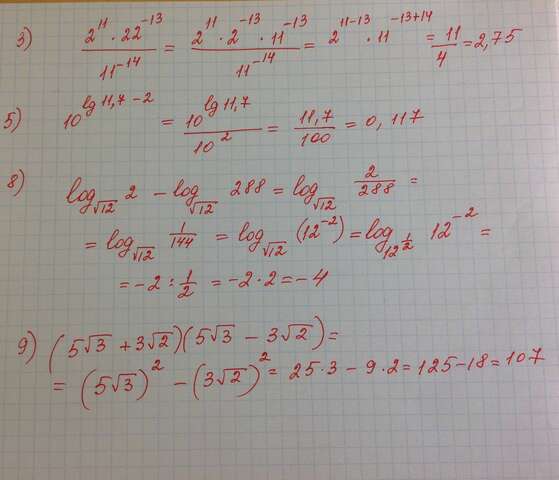 3) (2^11 · 22^-13)/(11^-14) = (2^11 · 2^-13 · 11^-13)/(11^-14) = 2^(11-13) · 11^(-13+14) = 11/4 = 2,75
5) 10^(lg 11,7 - 2) = 10^(lg 11,7)/10^2 = 11,7/100 = 0,117
8) log_√12 2 - log_√12 288 = log_√12 2/288 =
= log_√12 1/144 = log_√12 (12^-2) = log_12^(1/2) 12^-2 =
= -2 : 1/2 = -2 · 2 = -4
9) (5√3 + 3√2)(5√3 - 3√2) =
= (5√3)^2 - (3√2)^2 = 25·3 - 9·2 = 125 - 18 = 107